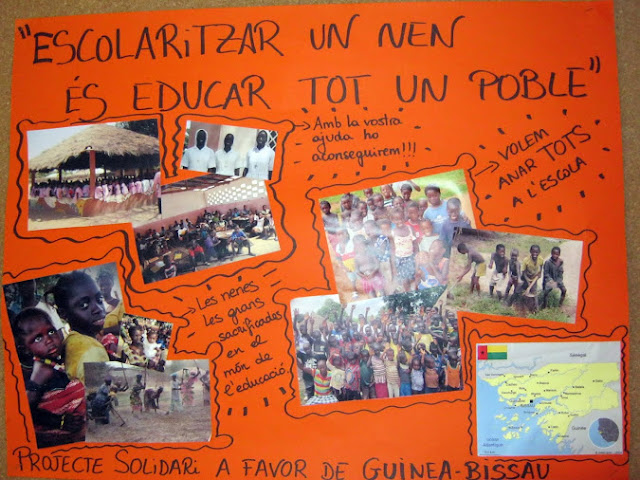 "ESCOLARITZAR UN NEN
ÉS EDUCAR TOT UN POBLE"
→ Amb la vostra
ajuda ho
aconseguirem!!!
→ VOLEM
ANAR TOTS
A L'ESCOLA
Les nenes
les grans
sacrificades
en el
món de
l'educació.
PROJECTE SOLIDARI A FAVOR DE GUINEA-BISSAU